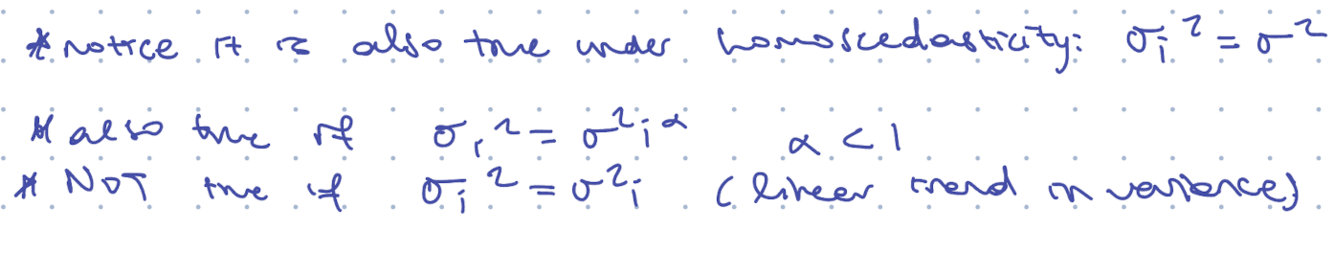 * notice it is also true under homoscedasticity: σᵢ² = σ²
* also true if σᵢ² = σ² i^α α < 1
* NOT true if σᵢ² = σ² i (linear trend in variance)